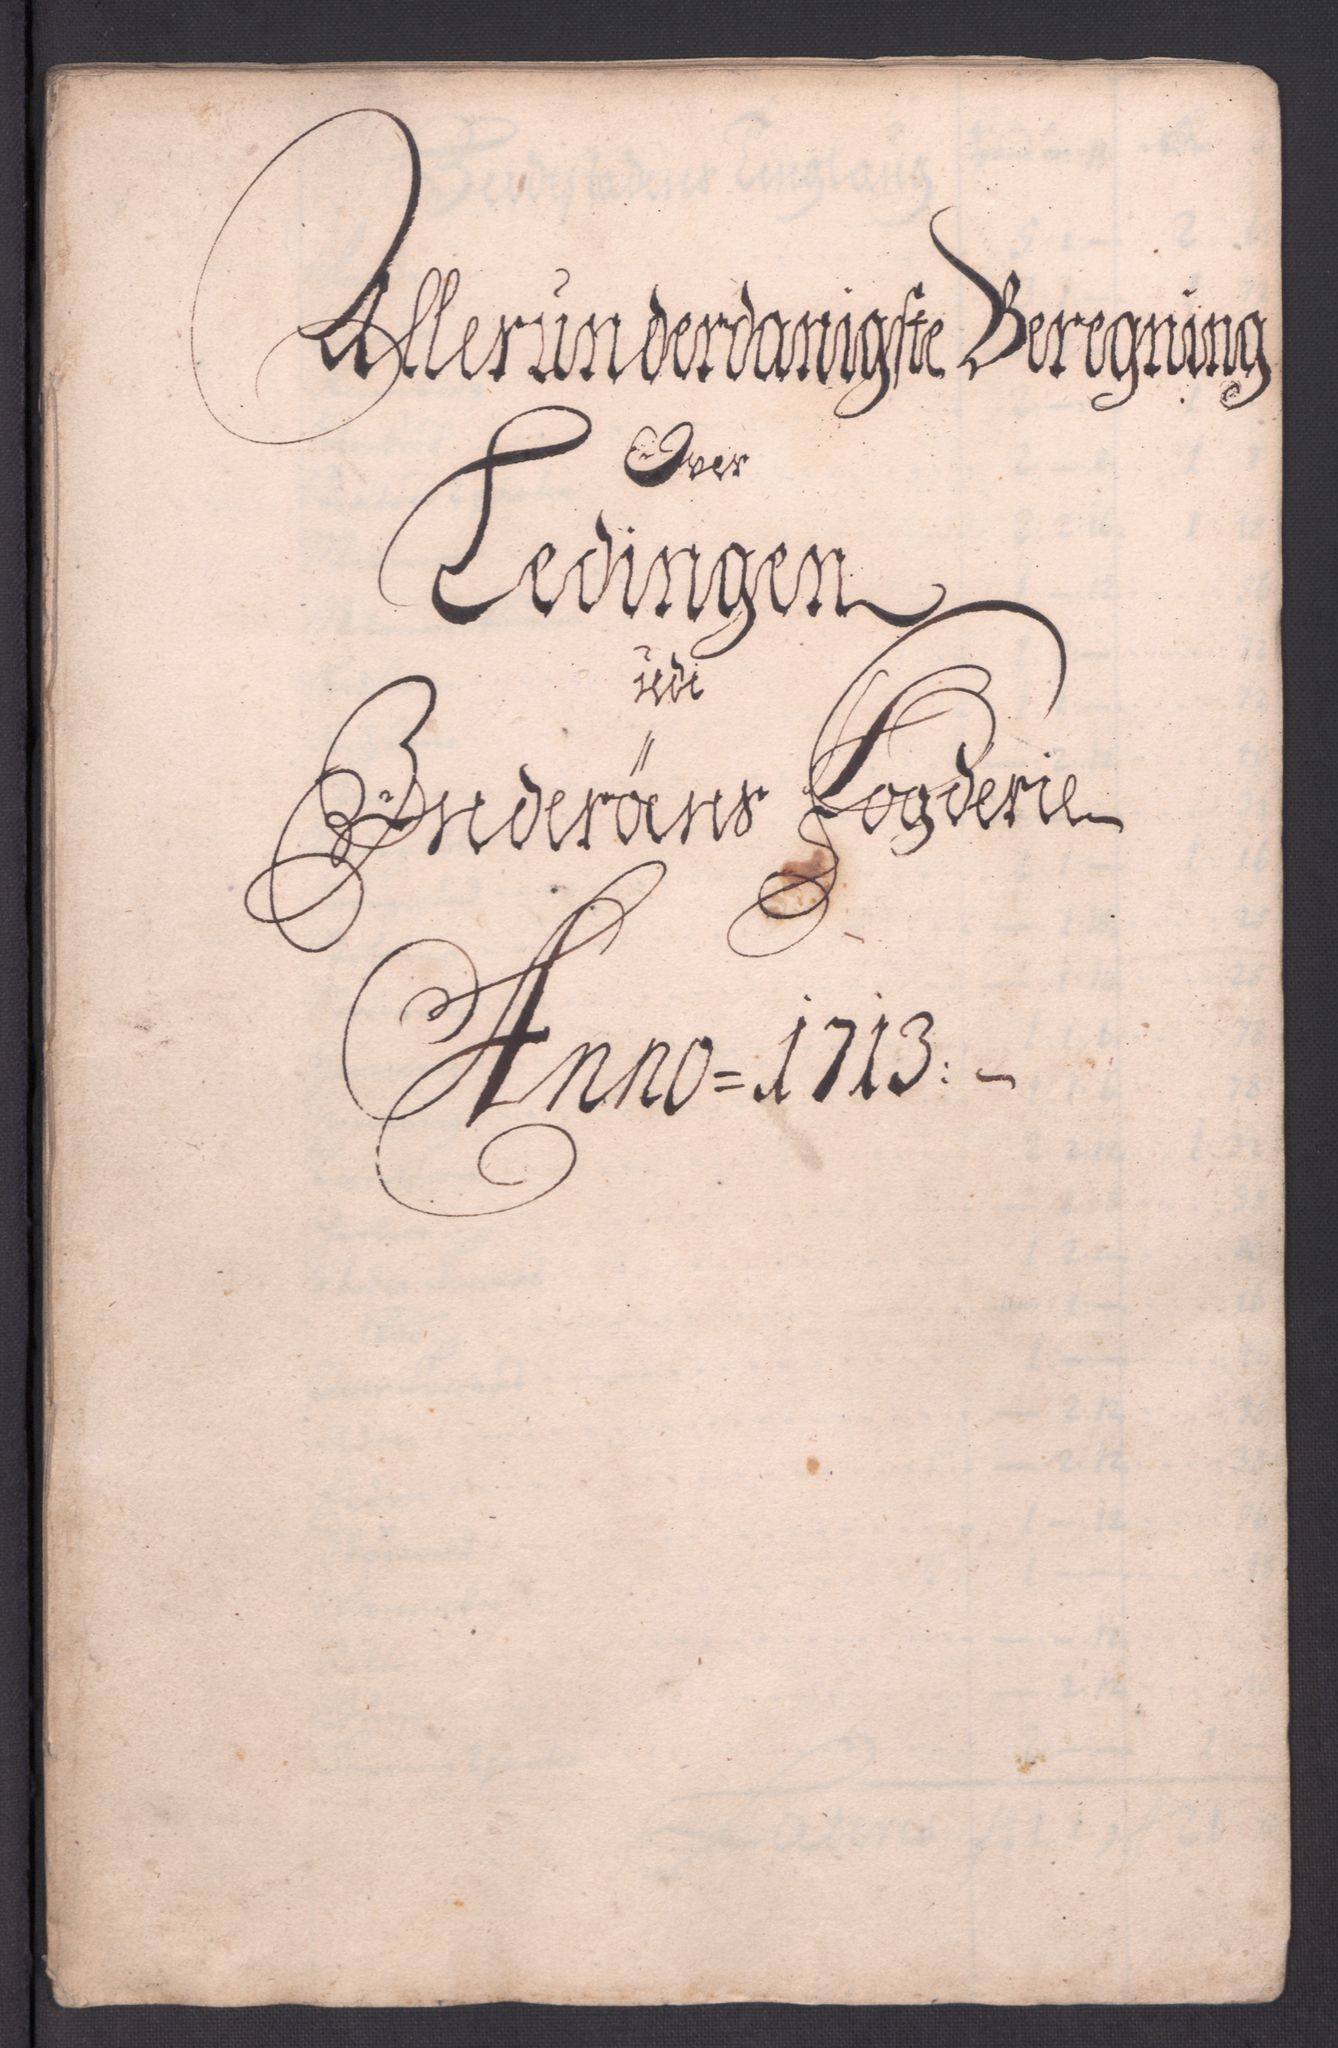 Allerunderdanigste Beregning
Over
Ledingen
udi
Inderöens Fogderie
Anno = 1713: -